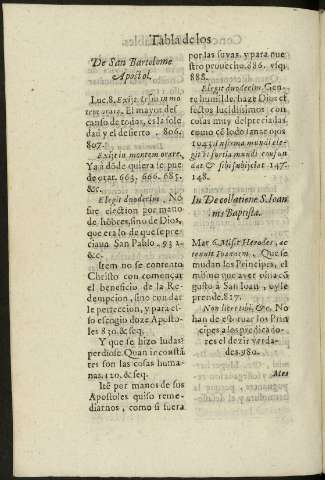 Tabla de los
De San Bartolome
Apostol.
Luc. 8. Exijt Iesus in mo
te orare. El mayor des
canso de todos, es la sole
dad y el desierto. 806.
807.
Exijt in montem orare.
Ya a dōde quiera se pue
de orar. 663. 666. 685.
&c.
Elegit duodecim. No
fue election por mano
de hōbres, sino de Dios,
que era lo de que se pre
ciaua San Pablo. 932.
&c.
Item no se contento
Christo con començar
el beneficio de la Re-
dempcion, sino con dar
le perfeccion, y para es-
so escogio doze Aposto-
les 830. & seq.
Y que se hizo Iudas?
perdiose. Quan incostā
tes son las cosas huma-
nas. 120. & seq.
Itē por manos de sus
Apostoles quiso reme-
diarnos, como si fuera
por las suyas, y para nue
stro prouecho. 686. vsq.
888.
Elegit duodecim. Gen-
te humilde, haze Dios ef
fectos lucidissimos con
cosas muy despreciadas,
como cō lodo sanar ojos
1043. infirma mundi ele-
git vt fortia mundi confun
dat & sibi subijciat 147.
148.
In Decollatione S. Ioan
nis Baptistæ.
Mat. 6. Misit Herodes, ac
tenuit Ioannem. Que se
mudan los Principes, el
mismo que ayer oìa cō gu
sto a San Iuan, oy le
prende. 817.
Non licet tibi, &c. No
han de estoruar los Prin
cipes a los predicado-
res el dezir verda-
des. 980.
Ales